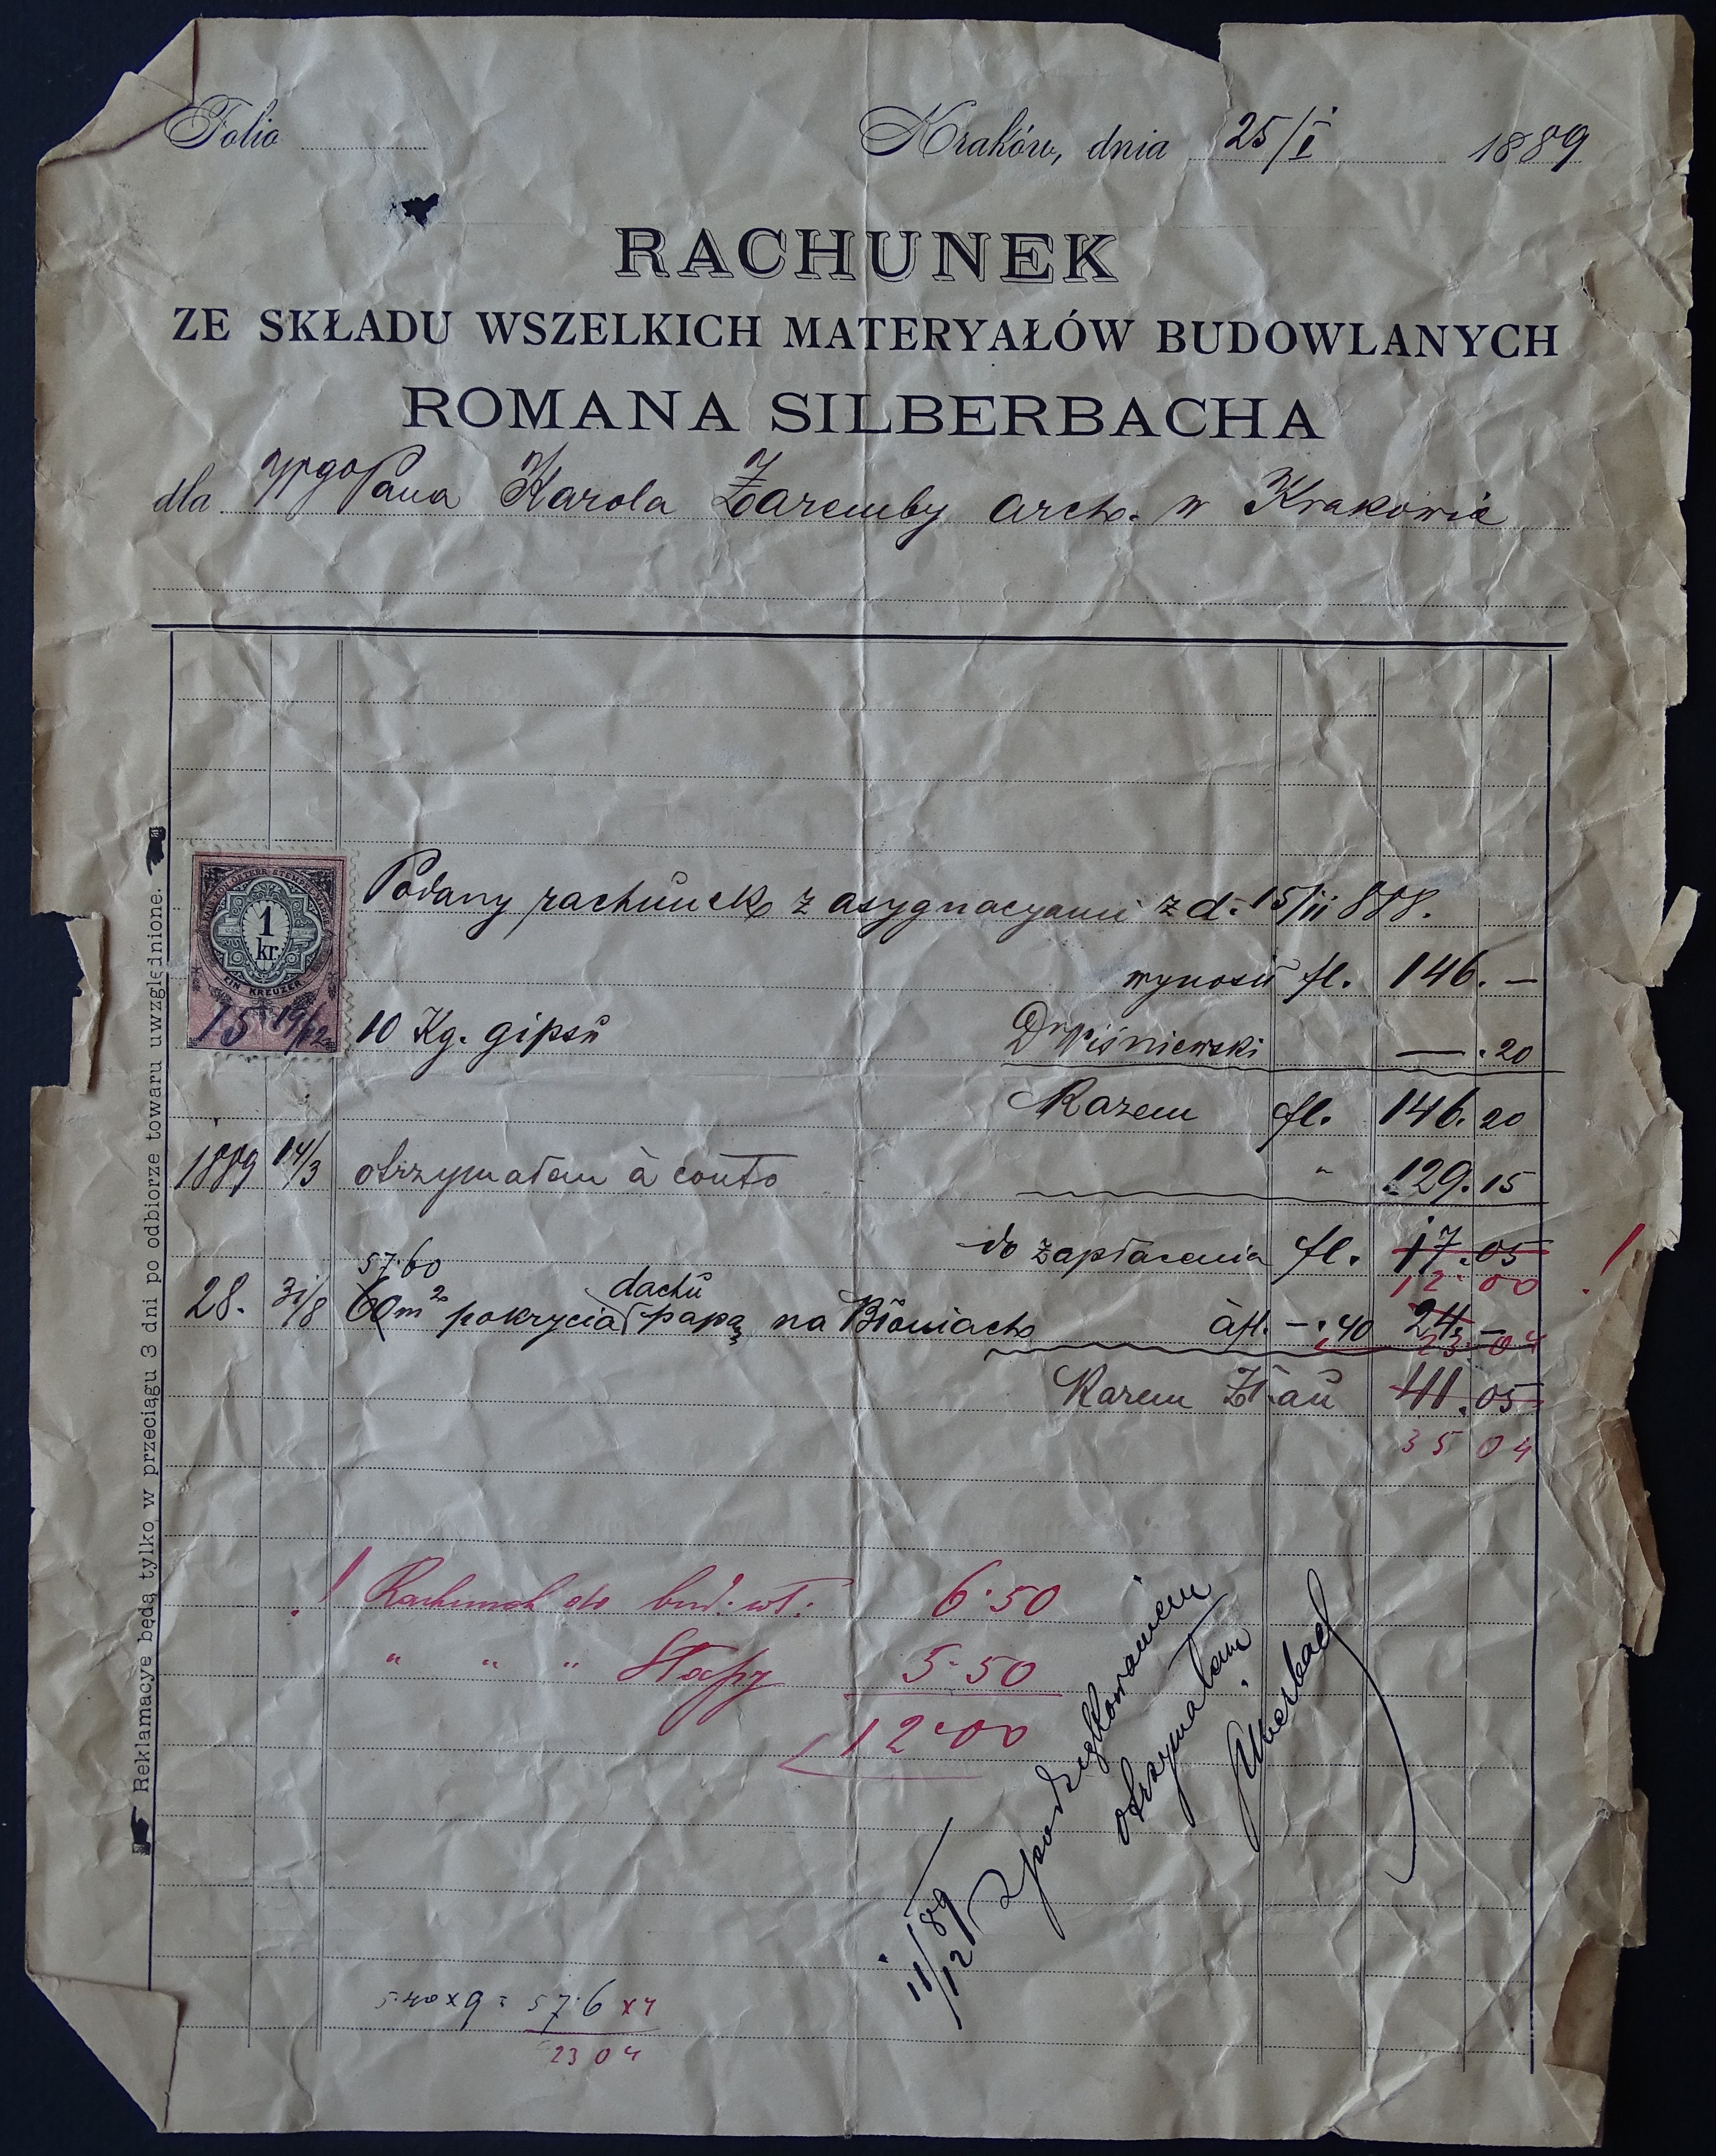 Folio
Kraków, dnia 25/I 1889
RACHUNEK
ZE SKŁADU WSZELKICH MATERYAŁÓW BUDOWLANYCH
ROMANA SILBERBACHA
dla Wgo Pana Karola Zaremby arch. w Krakowie
Podany rachunek z asygnacyami z d. 15/11 888.
wynosił fl. 146. —
10 Kg. gipsu Dr Wiśniewski — . 20
Razem fl. 146. 20
1889 14/3 otrzymałem à conto " 129. 15
do zapłacenia fl. 17. 05 !
12. 00
57.60
dachu
28. 31/8 60 m² pokrycia papą na Błoniach à fl. — . 40 24. —
23. 04
Razem Zł. au 41. 05
35 04
! Rachunek do bud. wł. 6.50
" " " Stafy 5.50
12.00
11/12 89 Z podziękowaniem
otrzymałem
Silberbach
5.40 x 9 = 57.6 x 4
23 04
1
kr.
EIN KREUZER
15 19/12
Reklamacye będą tylko w przeciągu 3 dni po odbiorze towaru uwzględnione.